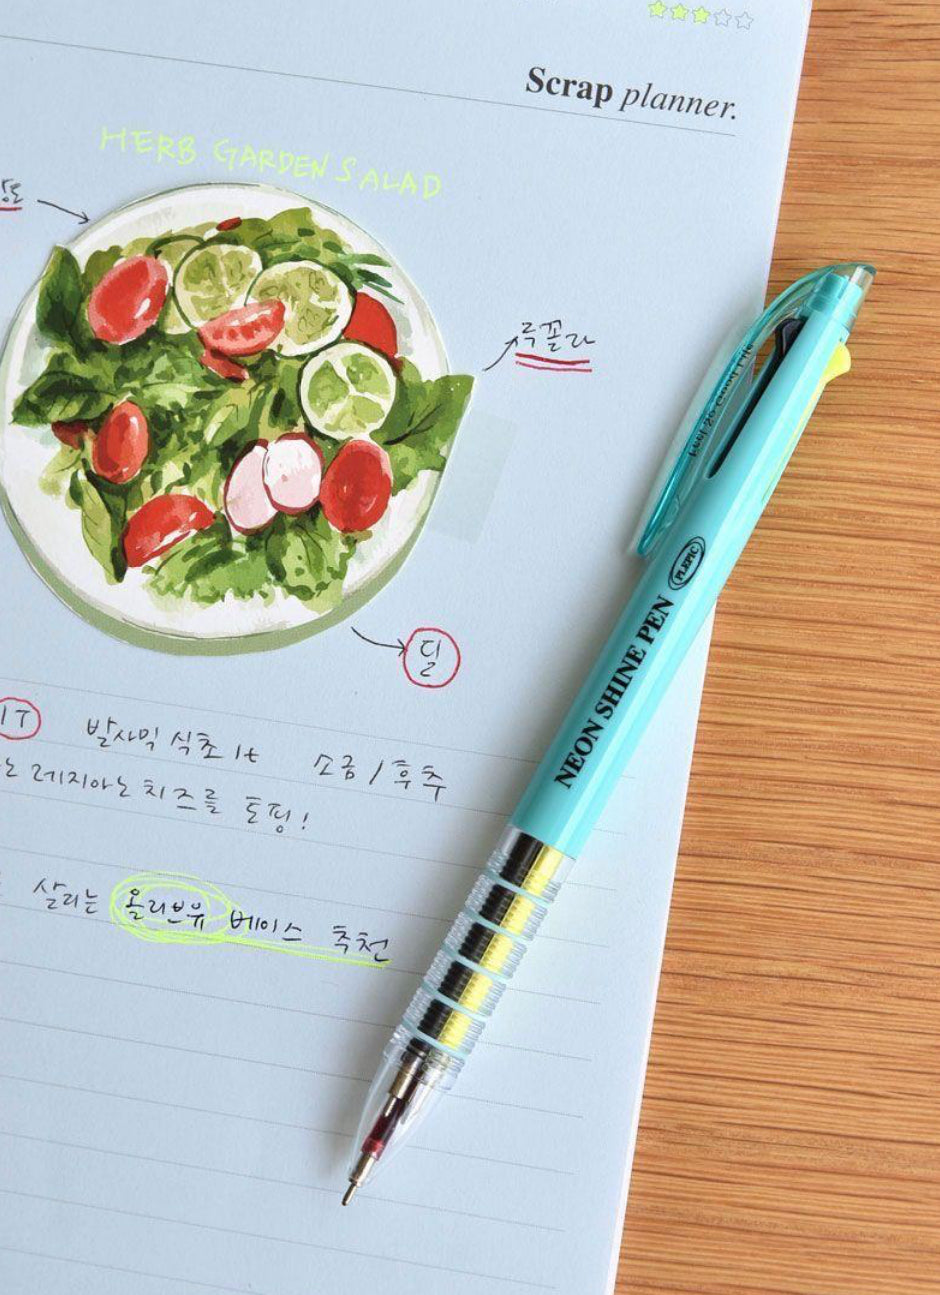 Scrap planner.
HERB GARDEN SALAD
루꼴라
Feel so Good Life
PLEPIC
NEON SHINE PEN
딜
1T 발사믹 식초 1t 소금/후추
레지아노 치즈를 토핑!
살리는 올리브유 베이스 추천